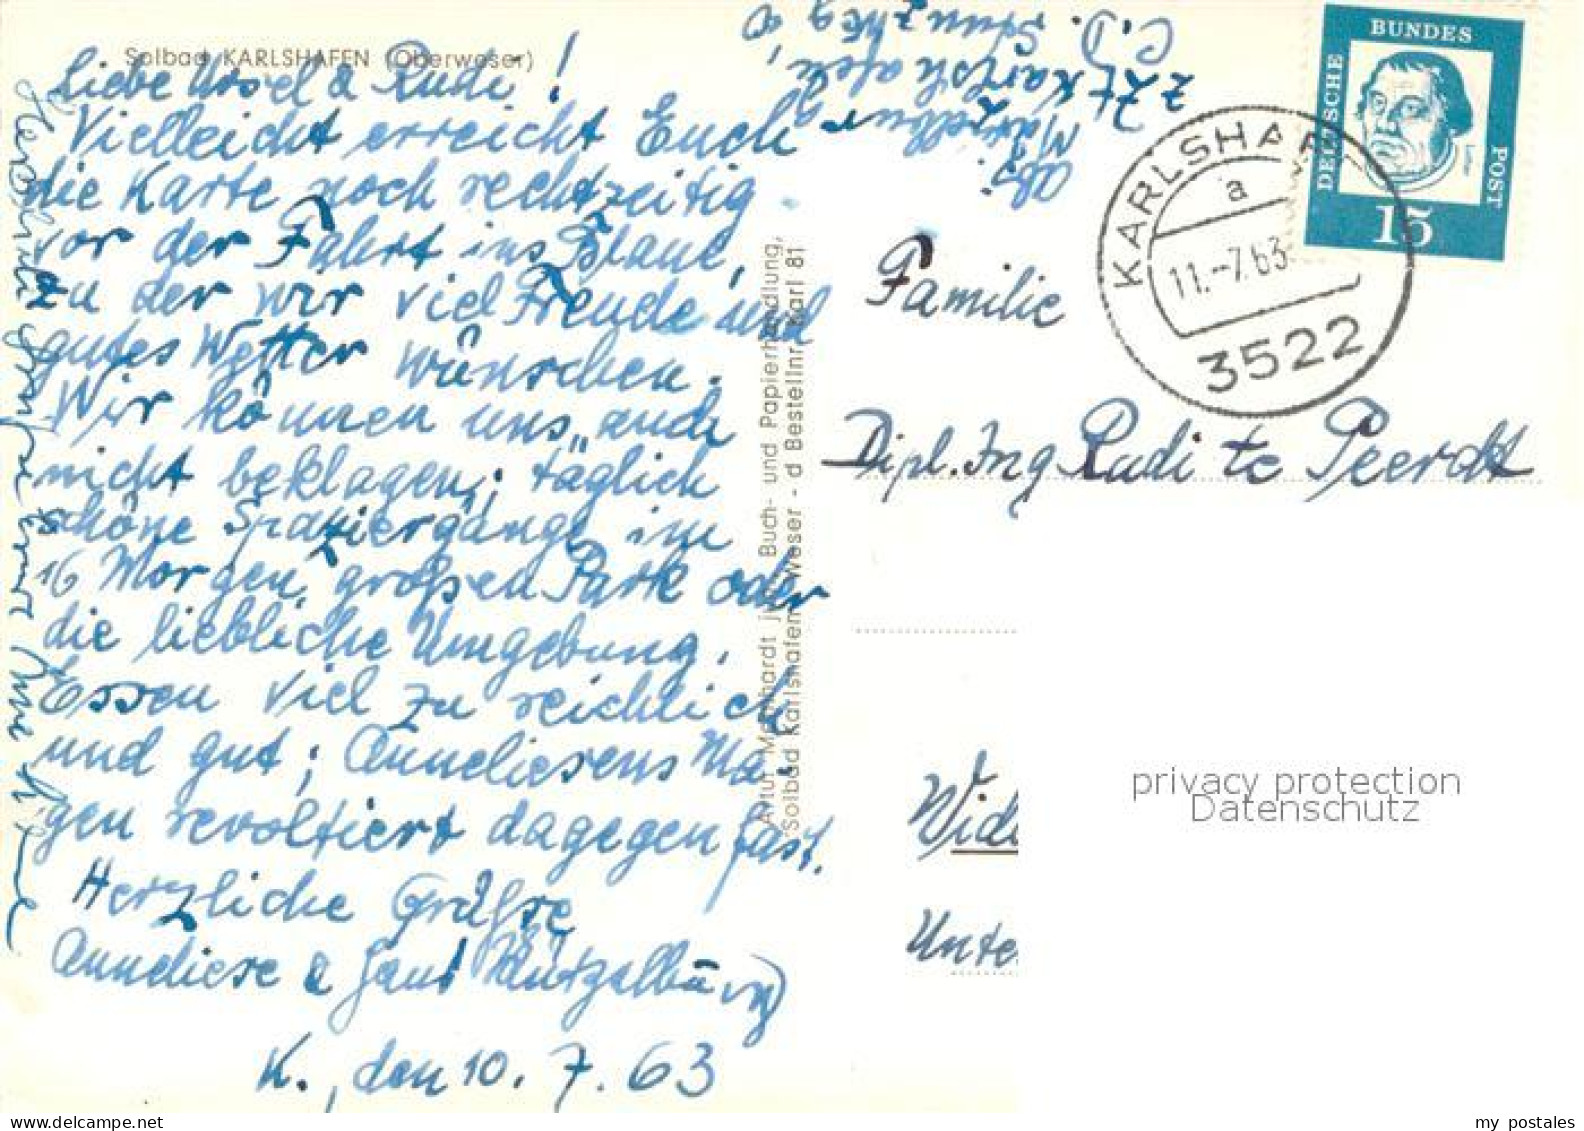 Solbad KARLSHAFEN (Oberweser)
Liebe Ursel & Rudi!
Vielleicht erreicht Euch
die Karte noch rechtzeitig
vor der Fahrt ins Blaue,
zu der wir viel Freude und
gutes Wetter wünschen.
Wir können uns „auch
nicht beklagen“; täglich
schöne Spaziergänge im
16 Morgen großen Park oder
die liebliche Umgebung.
Essen viel zu reichlich
und gut; Anneliesens Ma-
gen revoltiert dagegen fast.
Herzliche Grüße
Anneliese & Hans
K., den 10. 7. 63
Artur Buch- und Papierhandlung,
Solbad Karlshafen Weser - d Bestellnr. Karl 81
Abs.
z Zt Karlshafen,
DEUTSCHE
BUNDES
POST
15
KARLSHAFEN
a
11.-7.63
3522
Familie
Dipl. Ing Rudi te Peerdt
Wid
Unte
privacy protection
Datenschutz
my postales